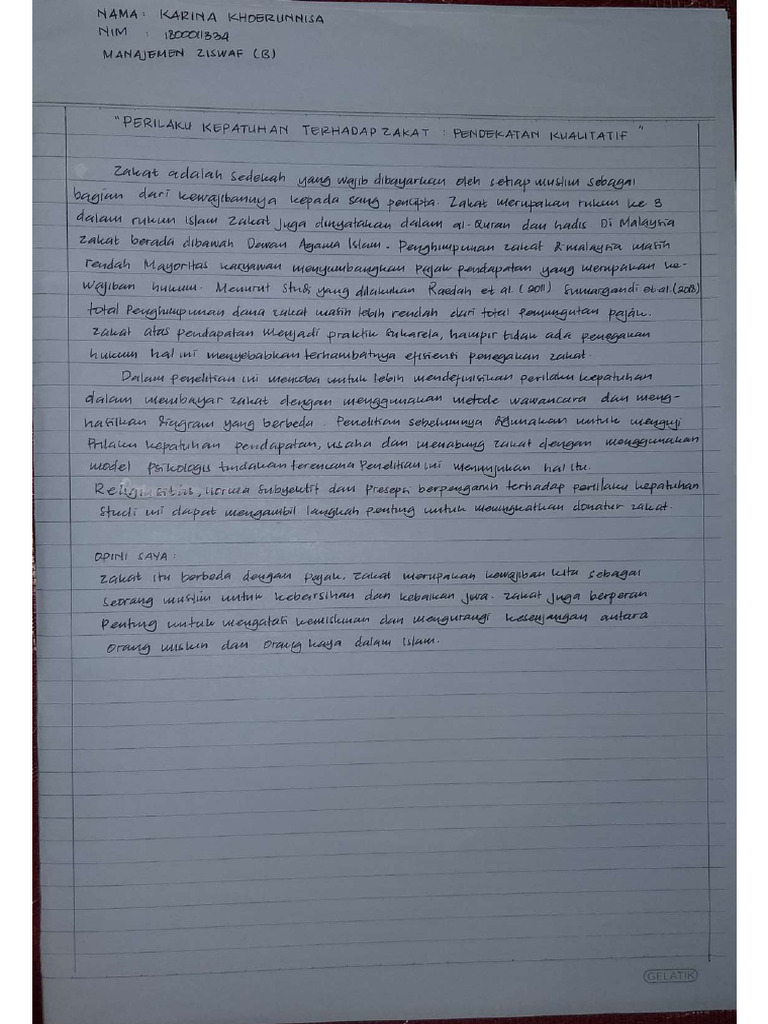 NAMA : KARINA KHOERUNNISA
NIM : 1800011334
MANAJEMEN ZISWAF (B)
"PERILAKU KEPATUHAN TERHADAP ZAKAT : PENDEKATAN KUALITATIF"
Zakat adalah sedekah yang wajib dibayarkan oleh setiap muslim sebagai
bagian dari kewajibannya kepada sang pencipta. Zakat merupakan rukun ke 3
dalam rukun islam Zakat juga dinyatakan dalam al-Quran dan hadis Di Malaysia
zakat berada dibawah Dewan Agama Islam. Penghimpunan zakat di malaysia masih
rendah Mayoritas karyawan menyumbangkan pajak pendapatan yang merupakan ke-
wajiban hukum. Menurut studi yang dilakukan Raedah et al. (2011) et al. (2018)
total penghimpunan dana zakat masih lebih rendah dari total pemungutan pajak.
zakat atas pendapatan menjadi praktik sukarela, hampir tidak ada penegakan
hukum hal ini menyebabkan terhambatnya efisiensi penegakan zakat.
Dalam penelitian ini mencoba untuk lebih mendefinisikan perilaku kepatuhan
dalam membayar zakat dengan menggunakan metode wawancara dan meng-
hasilkan diagram yang berbeda. Penelitian sebelumnya digunakan untuk menguji
prilaku kepatuhan pendapatan, usaha dan menabung zakat dengan menggunakan
model psikologis tindakan terencana Penelitian ini menunjukan hal itu.
Religiusitas, norma subyektif dan presepsi berpengaruh terhadap perilaku kepatuhan
studi ini dapat mengambil langkah penting untuk meningkatkan donatur zakat.
OPINI SAYA :
zakat itu berbeda dengan pajak. zakat merupakan kewajiban kita sebagai
seorang muslim untuk kebersihan dan kebaikan jiwa. zakat juga berperan
penting untuk mengatasi kemiskinan dan mengurangi kesenjangan antara
orang miskin dan orang kaya dalam islam.
GELATIK